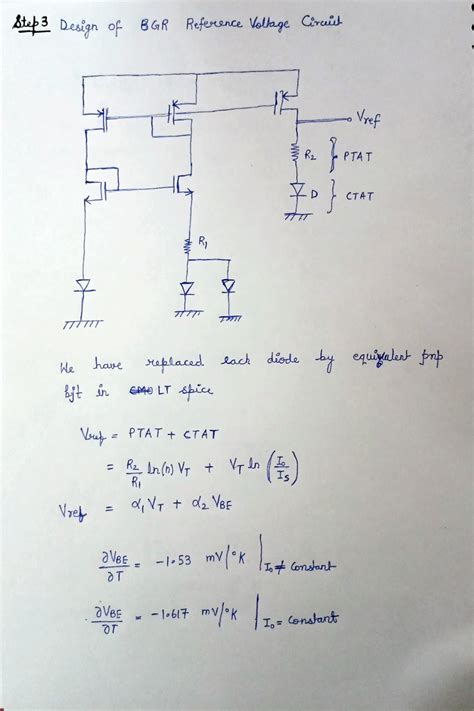 Step 3 Design of BGR Reference Voltage Circuit
Vref
R2 } PTAT
D } CTAT
R1
We have replaced each diode by equivalent pnp
bjt in LT spice
Vref = PTAT + CTAT
= R2/R1 ln(n) VT + VT ln (I0/IS)
Vref = α1 VT + α2 VBE
∂VBE/∂T = -1.53 mV/°K | I0 ≠ constant
∂VBE/∂T = -1.617 mV/°K | I0 = constant